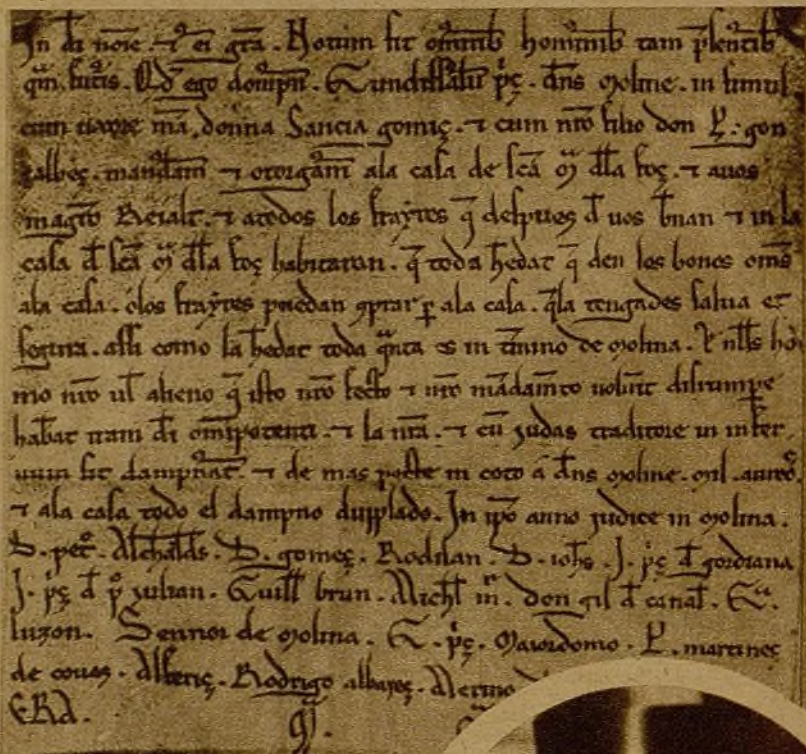 In dī nōīe. ⁊ ei grā. Notum sit omnib hominib tam p̄sentib
qm̄ futis. Qd ego dompn̄. Gundissaluˀ pc. dn̄s moline. in simul
cum uxore mā, donna Sancia gomiç. ⁊ cum nro filio don P. gon
çalbeç. mandam ⁊ otorgam ala casa de scā M̄ dla hoç. ⁊ auos
magro Reialt. ⁊ atodos los frayres q̄ despues d uos uernan ⁊ in la
casa d scā M̄ dla hoç habitaran. q̄ toda hedat q̄ den los bonos oms
ala casa. olos frayres puedan ꝯprar ꝑ ala casa. q̄la tengades salua et
segura. assi como la hedat toda qnta es in tmino de molina. Et nlls ho
mo nro ul alieno q̄ isto nro fecto ⁊ nro mādamto uolūit disrumpe
habeat iram dī omipotenti. ⁊ la nrā. ⁊ cū iudas traditore in infer
num sit dampnat. ⁊ de mas peite in coto a dn̄s moline. mil. aureos.
⁊ ala casa todo el dampno dupplado. In ipo anno judice in molina.
D. pet. D. gomeç. Rodlan. D. iohs. J. pc d gordiana
J. pc d p iulian. Guill brun. Michl. don gil d canal. G.
luzon. Sennor de molina. G. pc. Maiordomo. P. martineç
de couas. Rodrigo albareç.
ERA.